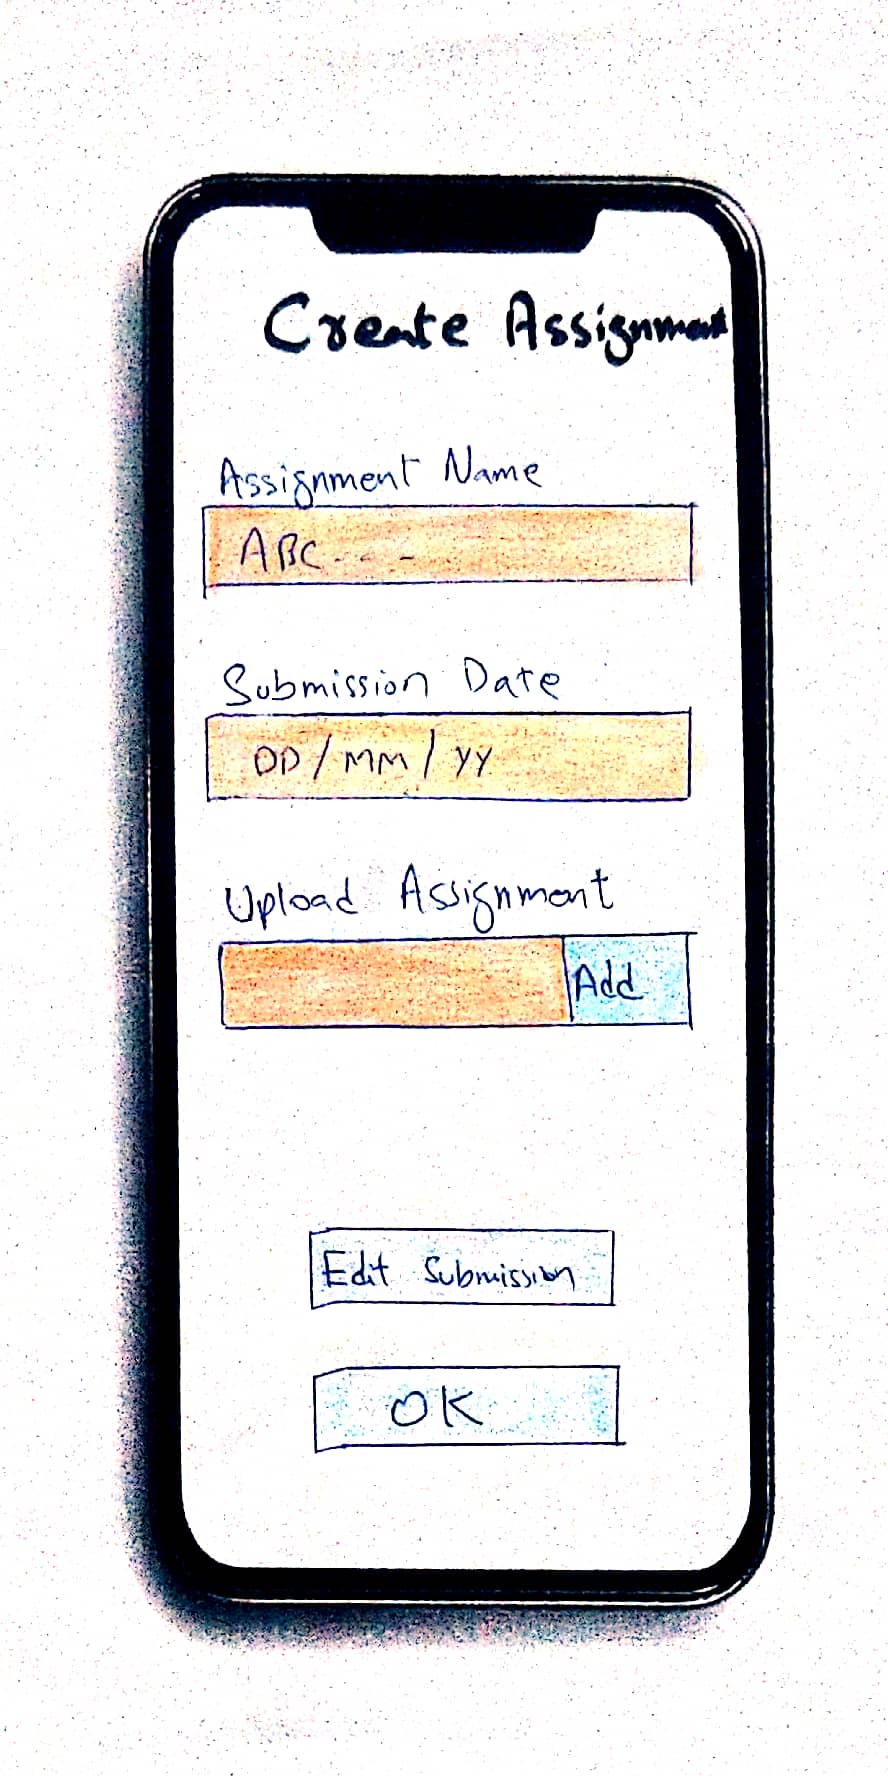 Create Assignment
Assignment Name
ABC - - -
Submission Date
DD / MM / YY
Upload Assignment
Add
Edit Submission
OK